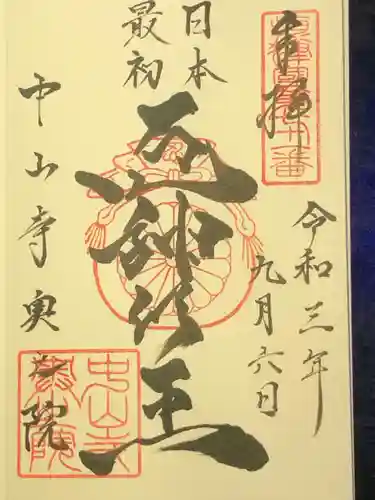 奉拝
令和三年
九月六日
日本
最初
厄神明王
中山寺奥之院
中山寺